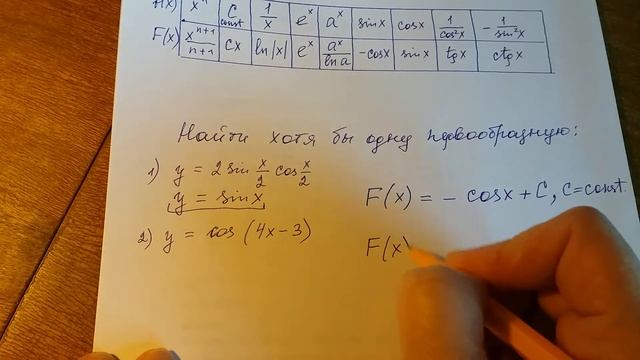 f(x) xⁿ C const 1/x eˣ aˣ sinx cosx 1/cos²x -1/sin²x
F(x) xⁿ⁺¹/n+1 Cx ln|x| eˣ aˣ/ln a -cosx sinx tgx ctgx
Найти хотя бы одну первообразную:
1) y = 2 sin x/2 cos x/2
y = sinx F(x) = - cosx + C, C=const
2) y = cos (4x-3) F(x)